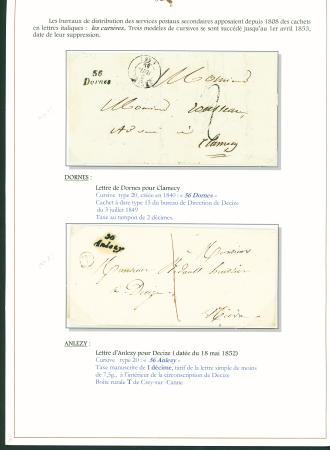 Les bureaux de distribution des services postaux secondaires apposaient depuis 1808 des cachets
en lettres italiques : les cursives. Trois modèles de cursives se sont succédé jusqu'au 1er avril 1853,
date de leur suppression.
56
Dornes
Monsieur
Monsieur
2
à
Clamecy
DORNES :
Lettre de Dornes pour Clamecy
Cursive type 20, créée en 1840 : « 56 Dornes »
Cachet à date type 15 du bureau de Direction de Decize
du 3 juillet 1849
Taxe au tampon de 2 décimes
56
Anlezy
Monsieur
Monsieur
à Decize
Nièvre
ANLEZY :
Lettre d'Anlezy pour Decize ( datée du 18 mai 1852)
Cursive type 20 : « 56 Anlezy »
Taxe manuscrite de 1 décime, tarif de la lettre simple de moins
de 7,5g., à l'intérieur de la circonscription de Decize
Boîte rurale T de Cizy-sur -Canne